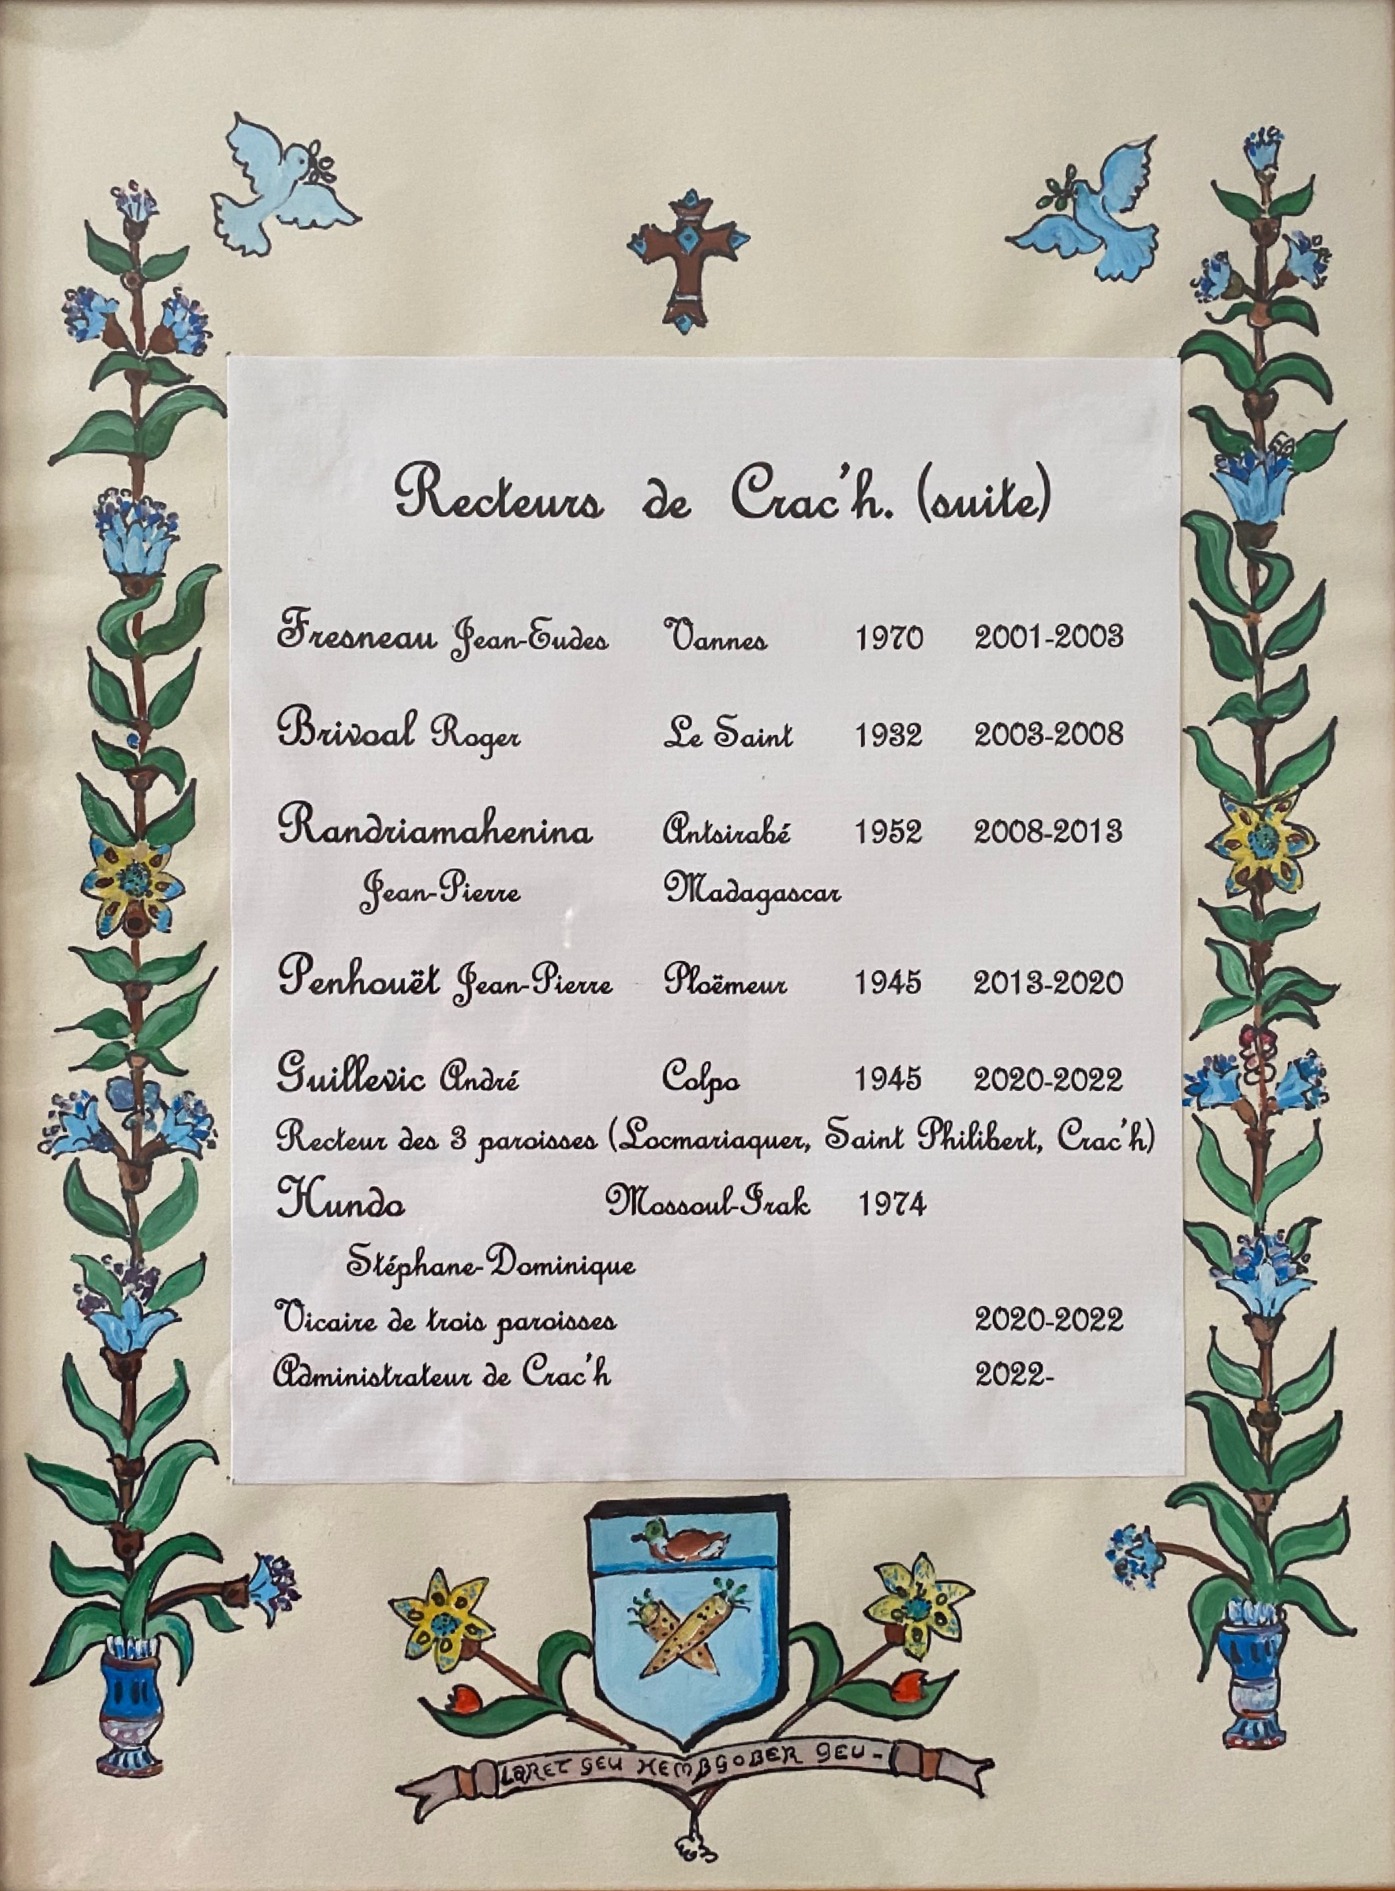 Recteurs de Crac'h. (suite)
Fresneau Jean-Eudes Vannes 1970 2001-2003
Brivoal Roger Le Saint 1932 2003-2008
Randriamahenina Antsirabé 1952 2008-2013
Jean-Pierre Madagascar
Penhouët Jean-Pierre Ploëmeur 1945 2013-2020
Guillevic André Colpo 1945 2020-2022
Recteur des 3 paroisses (Locmariaquer, Saint Philibert, Crac'h)
Hundo Mossoul-Irak 1974
Stéphane-Dominique
Vicaire de trois paroisses 2020-2022
Administrateur de Crac'h 2022-
LARET GEU HEMB GOBER GEU-